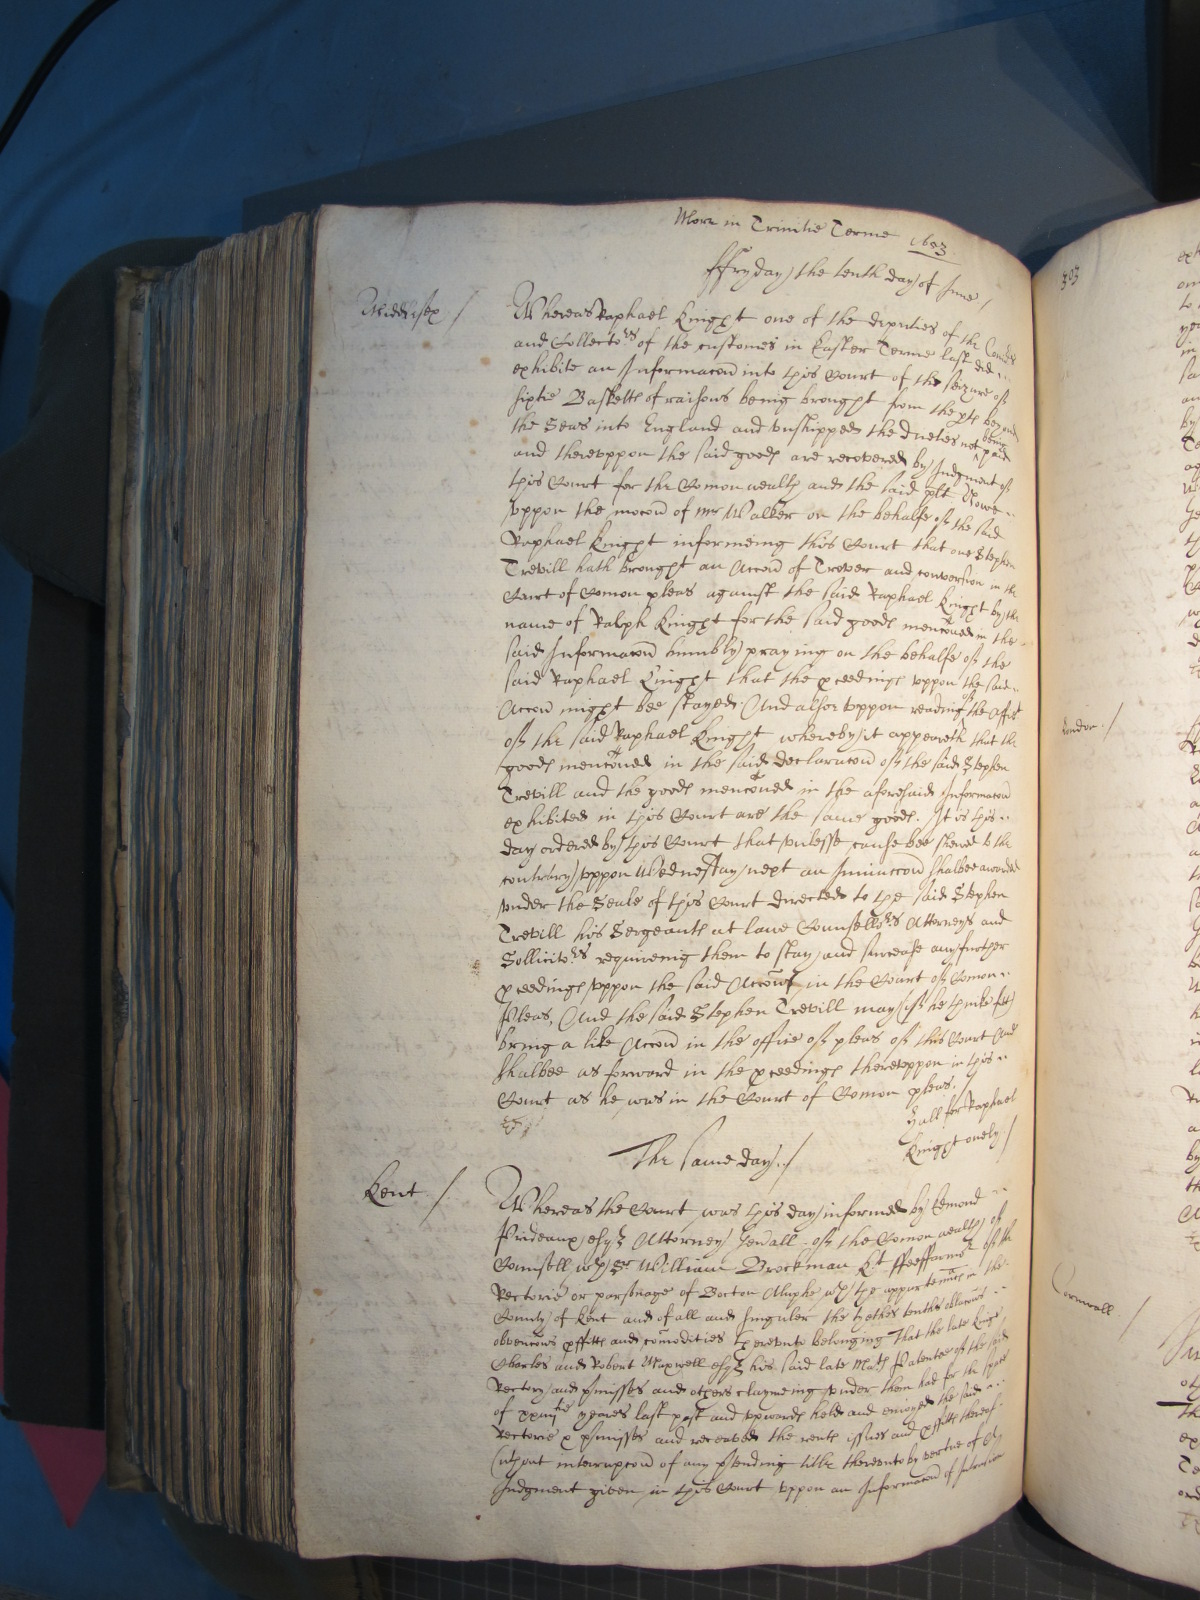 More in Trinitie Terme 1653
ffryday the tenth day of June /
Middlesex /
Whereas Raphael Knight one of the deputies of the
and Collectors of the customes in Easter Terme last did
exhibite an Informacon into this Court of the seizure of
sixtie Basketts of raisons being brought from the pts beyond
the Seas into England and unshipped the duties not being paid
and thereuppon the said goods are recovered by Judgment of
this Court for the Comon wealth and the said plt Nowe
uppon the mocon of mr Walker on the behalfe of the said
Raphael Knight informeing this Court that one Stephen
Trevill hath brought an Accon of Trover and conversion in the
Court of Comon pleas against the said Raphael Knight by the
name of Ralph Knight for the said goods menconed in the
said Informacon humbly praying on the behalfe of the
said Raphael Knight that the pceedings uppon the said
Accon might bee stayed And alsoe uppon reading of the Affit
of the said Raphael Knight whereby it appeareth that the
goods menconed in the said declaracon of the said Stephen
Trevill and the goods menconed in the aforesaid Informacon
exhibited in this Court are the same goods. It is this
day ordered by this Court that unlesse cause bee shewed to the
contrary uppon Wednesday next an Iniunccon shalbee awarded
under the Seale of this Court directed to the said Stephen
Trevill his Sergeants at lawe Counsellrs Attorneys and
Sollicitors requireing them to stay and surcease any further
pceedings uppon the said Accon in the Court of Comon
Pleas, And the said Stephen Trevill may (if he thinke fitt)
bring a like Accon in the office of pleas of this Court And
shalbee as forward in the pceedings thereuppon in this
Court as he was in the Court of Comon pleas. /
Hall for Raphael
Knight onely /
The same day. /
Kent /
Whereas the Court was this day informed by Edmond
Prideaux esqr Attorney Genall of the Comon wealth of
Counsell wth Sr William Brockman Kt ffeeffarmor of the
Rectorie or parsonage of Bocton Aluphe wth the appurtennces in the
County of Kent and of all and singuler the tythes tenths oblacons
obvencons pffitts and comodities thereunto belonging That the late Kinge
Charles and Robert Maxwell esqr his said late Mats Patentee of the said
Rectory and pmisses and others claymeing under them had for the space
of yeares last past and upwards held and enioyed the said
Rectorie & pmisses and receaved the rents issues and pffitts thereof
(without interrupcon of any ptending title thereunto by vertue of a
Judgment given in this Court uppon an Informacon of Intrusion
303
London. /
Cornwall. /